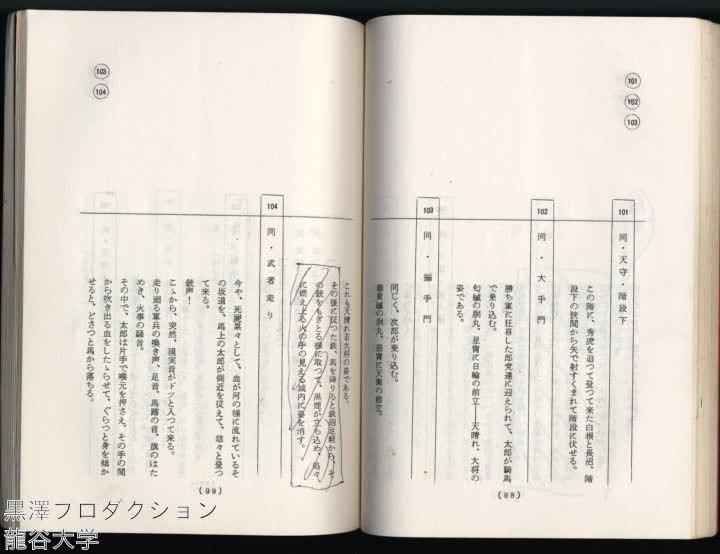 101
102
103
101 同・天守・階段下
この階に、秀虎を追つて登つて来た白根と長沼、階
段下の狭間から矢で射すくまれて階段に伏せる。
102 同・大手門
勝ち軍に狂喜した郎党達に迎えられて、太郎が騎馬
で乗り込む。
匂縅の胴丸、星冑に日輪の前立——天晴れ、大将の
姿である。
103 同・搦手門
同じく、次郎が乗り込む。
萠黄縅の胴丸、筋冑に天衝の前立。
(98)
103
104
これも天晴れ若大将の姿である。
その後に従つた鉄、馬を降りると鉄砲足軽から、そ
の銃をもぎとる様に取つて、黒煙が立ち込め、処々
に燃え上る火の手の見える城内に姿を消す。
104 同・武者走り
今や、死屍累々として、血が河の様に流れているそ
の坂道を、馬上の太郎が側近を従えて、悠々と登つ
て来る。
銃声!
こゝから、突然、現実音がドッと入つて来る。
走り廻る軍兵の喚き声、足音、馬蹄の音、旗のはた
めき、火事の騒音。
その中で、太郎は片手で喉元を押さえ、その手の間
から吹き出る血をしたゝらせて、ぐらつと身を傾か
せると、どさつと馬から落ちる。
(99)
黒澤プロダクション
龍谷大学